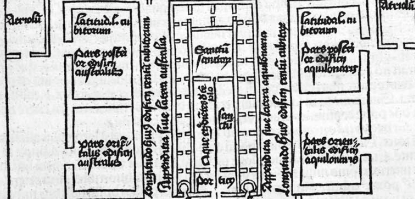 Atriolū
latitudo cu
bitorum
pars posteri
or edificii
australis
pars orien
talis edificii
australis
Longitudo huius edificii centū cubitorum
Appendicia siue latera australia
Sanctū
sanctorū
sanctū
por
ticus
Appendicia siue latera aquilonaria
Longitudo huius edificii centū cubitorū
latitudo cu
bitorum
pars posteri
or edificii
aquilonaris
pars orien
talis edificii
aquilonaris
Atriolū